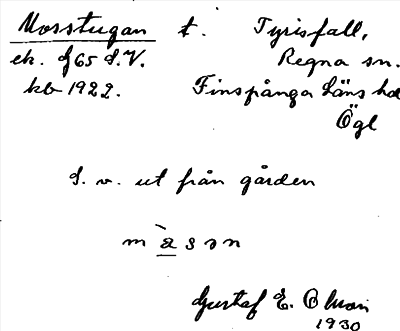 Mosstugan t. Tyrisfall,
ek. J65 S.V. Regna sn.
kb 1922. Finspånga Läns hd
Ögl
S. v. ut från gården
m a s ɔ n
Gustaf E. Olson
1930